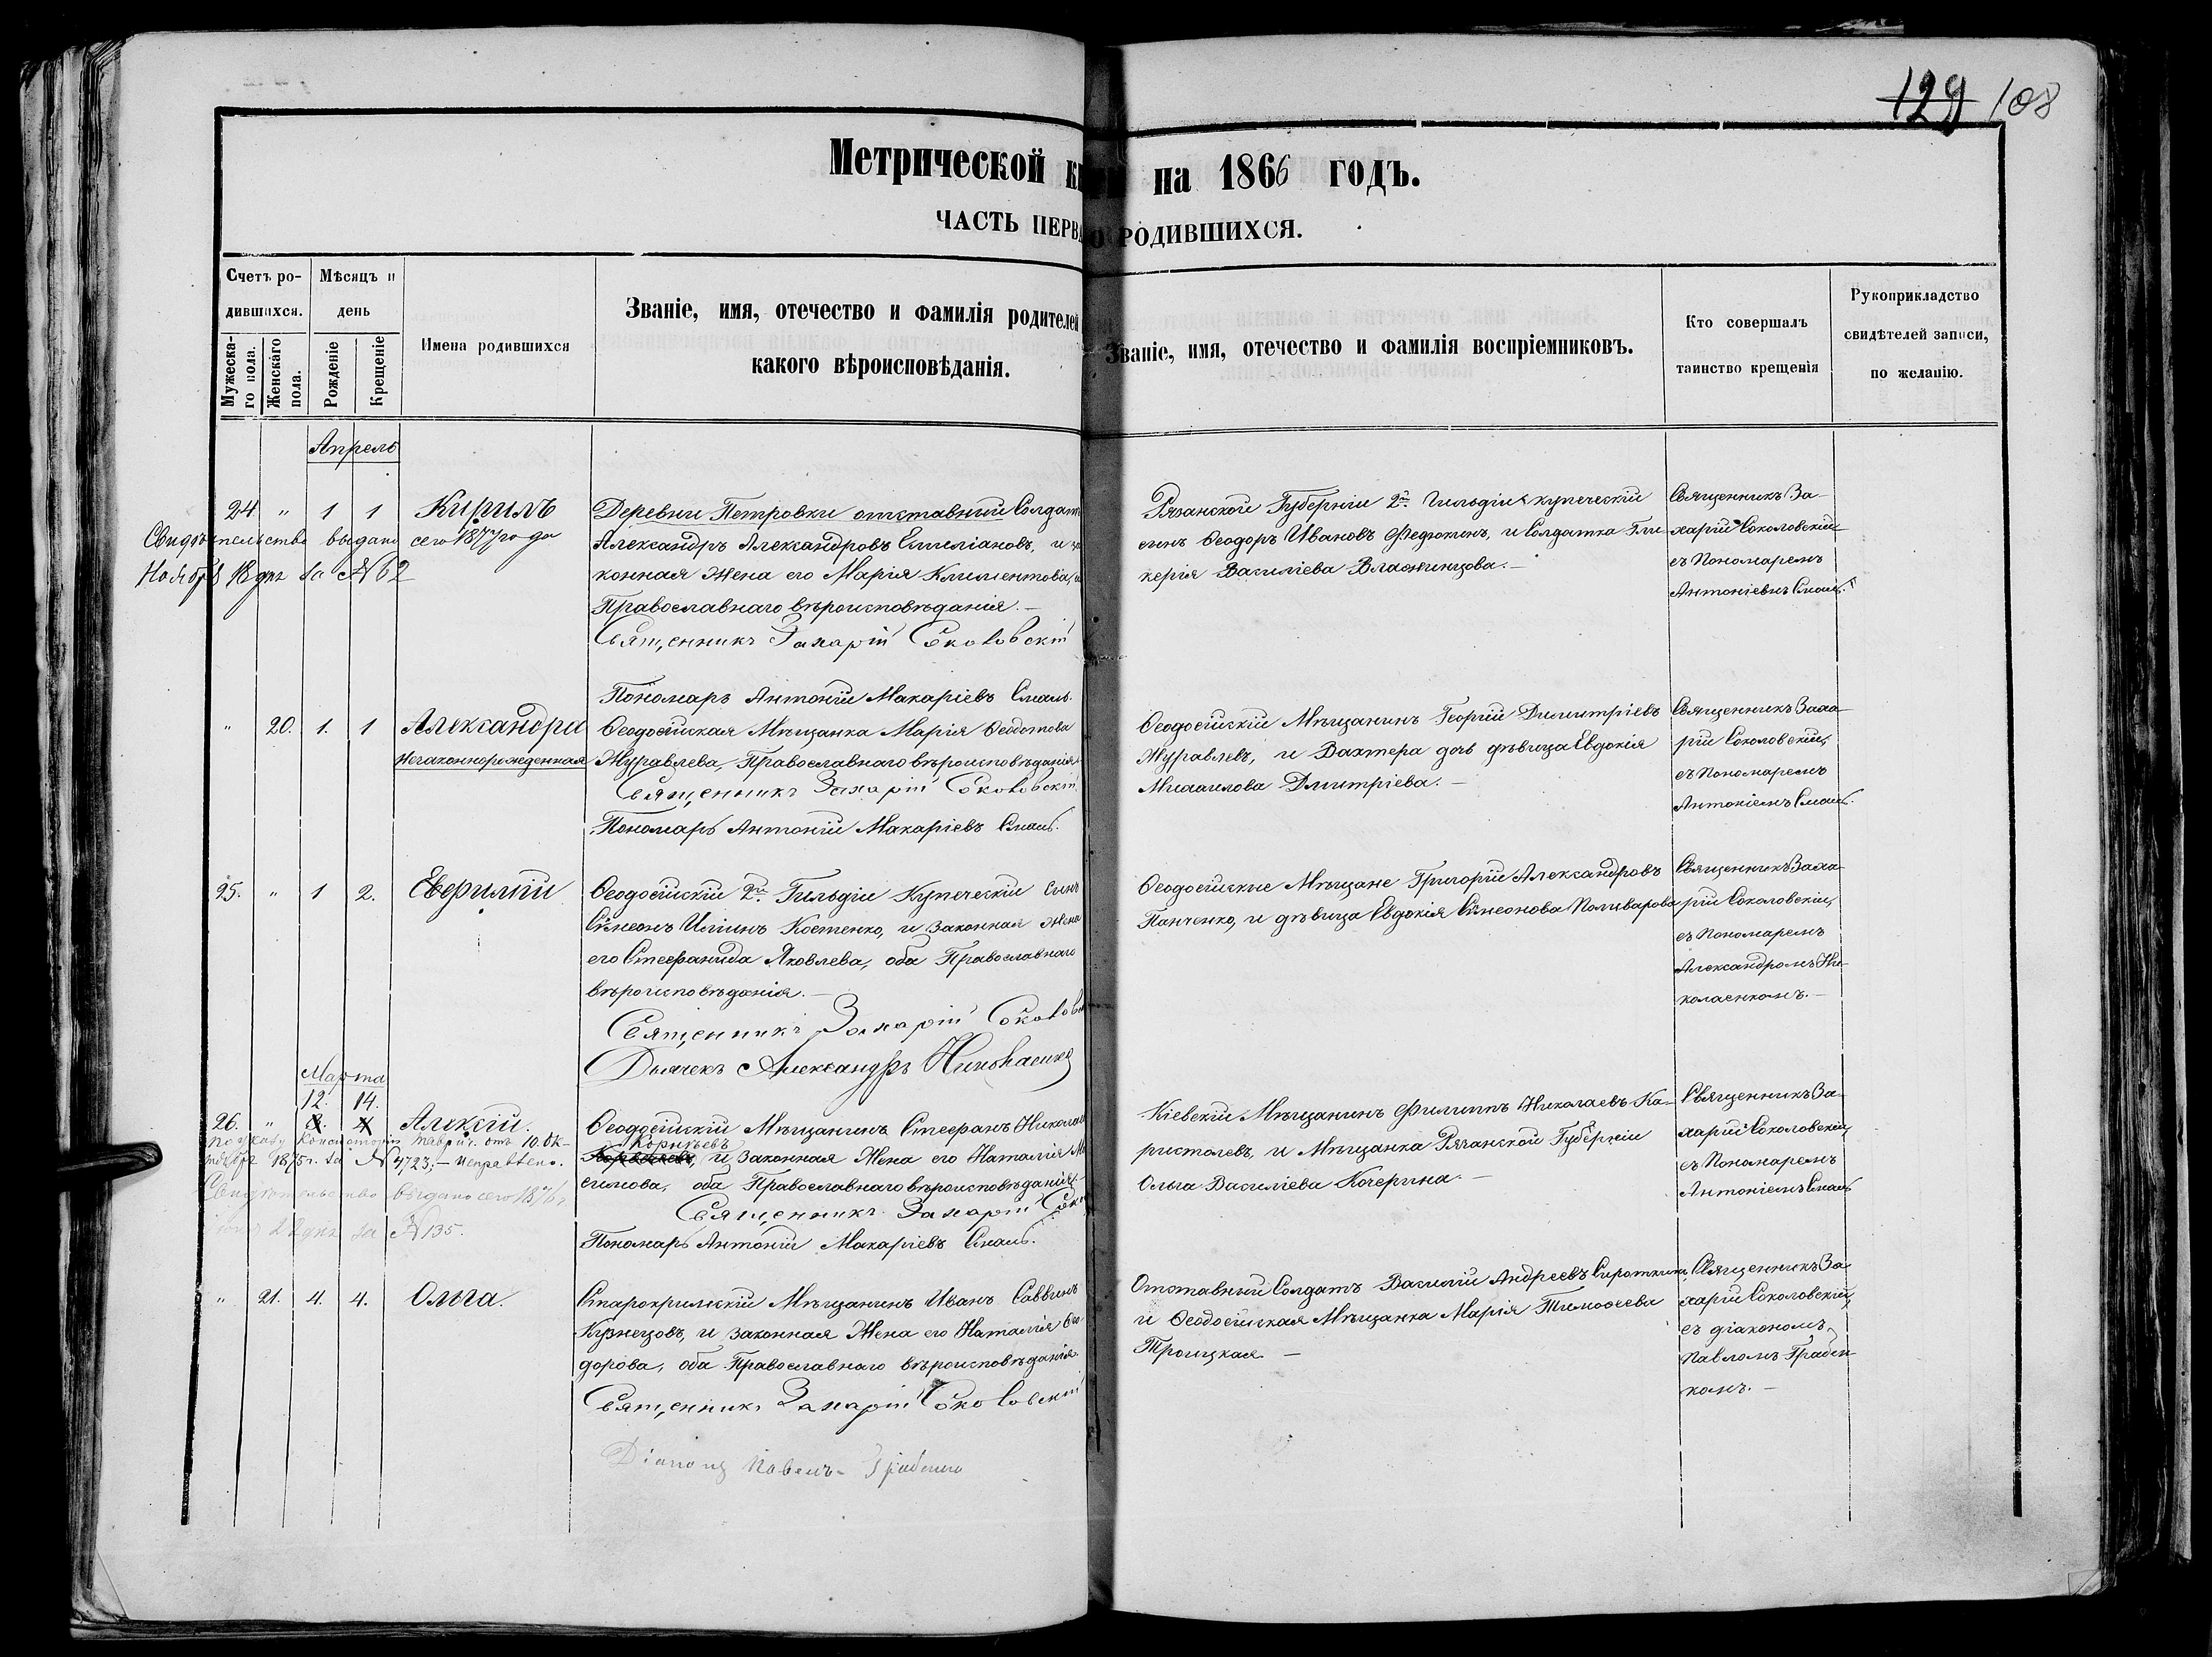 129 108
Метрической кн на 1866 годъ.
ЧАСТЬ ПЕРВА О РОДИВШИХСЯ.
Счетъ ро-
дившихся.
Мужеска-
го пола.
Женскаго
пола.
Мѣсяцъ и
день
Рожденіе
Крещеніе
Имена родившихся
Званіе, имя, отечество и фамилія родителей
какого вѣроисповѣданія.
Званіе, имя, отечество и фамилія воспріемниковъ.
Кто совершалъ
таинство крещенія
Рукоприкладство
свидѣтелей записи,
по желанію.
Апрель
24 " 1 1 Кирилъ
Свидѣтельство выдано сего 1877 года
Ноября 18 дня за № 62
Деревни Петровки отставный Солдатъ
Александръ Александровъ Симеліановъ, и за
конная Жена его Марія Климентова,
Православнаго вѣроисповѣданія.—
Священникъ Захарій Соколовскій
Пономарь Антоній Макаріевъ Смаль.
Рязанской Губерніи 2й Гильдіи купеческій
сынъ Ѳеодоръ Ивановъ Федюкинъ, и Солдатка Гли-
керія Василіева Владчинцова.—
Священникъ За-
харій Соколовскій
съ Пономаремъ
Антоніемъ Смаль.
" 20. 1. 1 Александра
Незаконнорожденная
Ѳеодосійская Мѣщанка Марія Ѳеодотова
Журавлева, Православнаго вѣроисповѣданія.
Священникъ Захарій Соколовскій
Пономарь Антоній Макаріевъ Смаль.
Ѳеодосійскій Мѣщанинъ Георгій Димитріевъ
Журавлевъ, и Вахтера дочь дѣвица Евдокія
Михаилова Дмитріева.—
Священникъ Заха-
рій Соколовскій,
съ Пономаремъ
Антоніемъ Смаль.
25. " 1 2. Евфимій
Ѳеодосійскій 2й Гильдіи Купеческій сынъ
Сѵмеонъ Иліинъ Костенко, и законная жена
его Стефанида Яковлева, оба Православнаго
вѣроисповѣданія.—
Священникъ Захарій Соколовс
Дьячекъ Александръ Николаенко
Ѳеодосійские Мѣщане Григорій Александровъ
Панченко, и дѣвица Евдокія Сѵмеонова Поливарова
Священникъ Заха-
рій Соколовскій,
съ Пономаремъ
Александромъ Ни-
колаенкомъ.—
Марта
12. 14.
26. " Алексій.
По указу Консисторіи Таврич. отъ 10. Ок-
тября 1875 г. за № 4723,— исправлено.
Свидѣтельство выдано сего 1876 г.
22 дня за № 135.
Ѳеодосійскій Мѣщанинъ Стефанъ Николаевъ
Корнѣевъ
и законная Жена его Наталія Ма
симова, оба Православнаго вѣроисповѣданія.
Священникъ Захарій Соко
Пономарь Антоній Макаріевъ Смаль.
Кіевскій Мѣщанинъ Филиппъ Николаевъ Ка-
ристолевъ, и Мѣщанка Рязанской Губерніи
Ольга Василіева Кочерина.—
Священникъ За-
харій Соколовскій,
съ Пономаремъ
Антоніемъ Смаль
" 21. 4. 4. Ольга.
Старокрымскій Мѣщанинъ Иванъ Саввинъ
Кузнецовъ, и законная Жена его Наталія Ѳео-
дорова, оба Православнаго вѣроисповѣданія.
Священникъ Захарій Соколовскій
Діаконъ Павелъ Грабенко
Отставный Солдатъ Василій Андреевъ Сироткинъ,
и Ѳеодосійская Мѣщанка Марія Тимоѳеева
Троицкая.—
Священникъ За-
харій Соколовскій,
съ діакономъ
Павломъ Грабен-
комъ.—